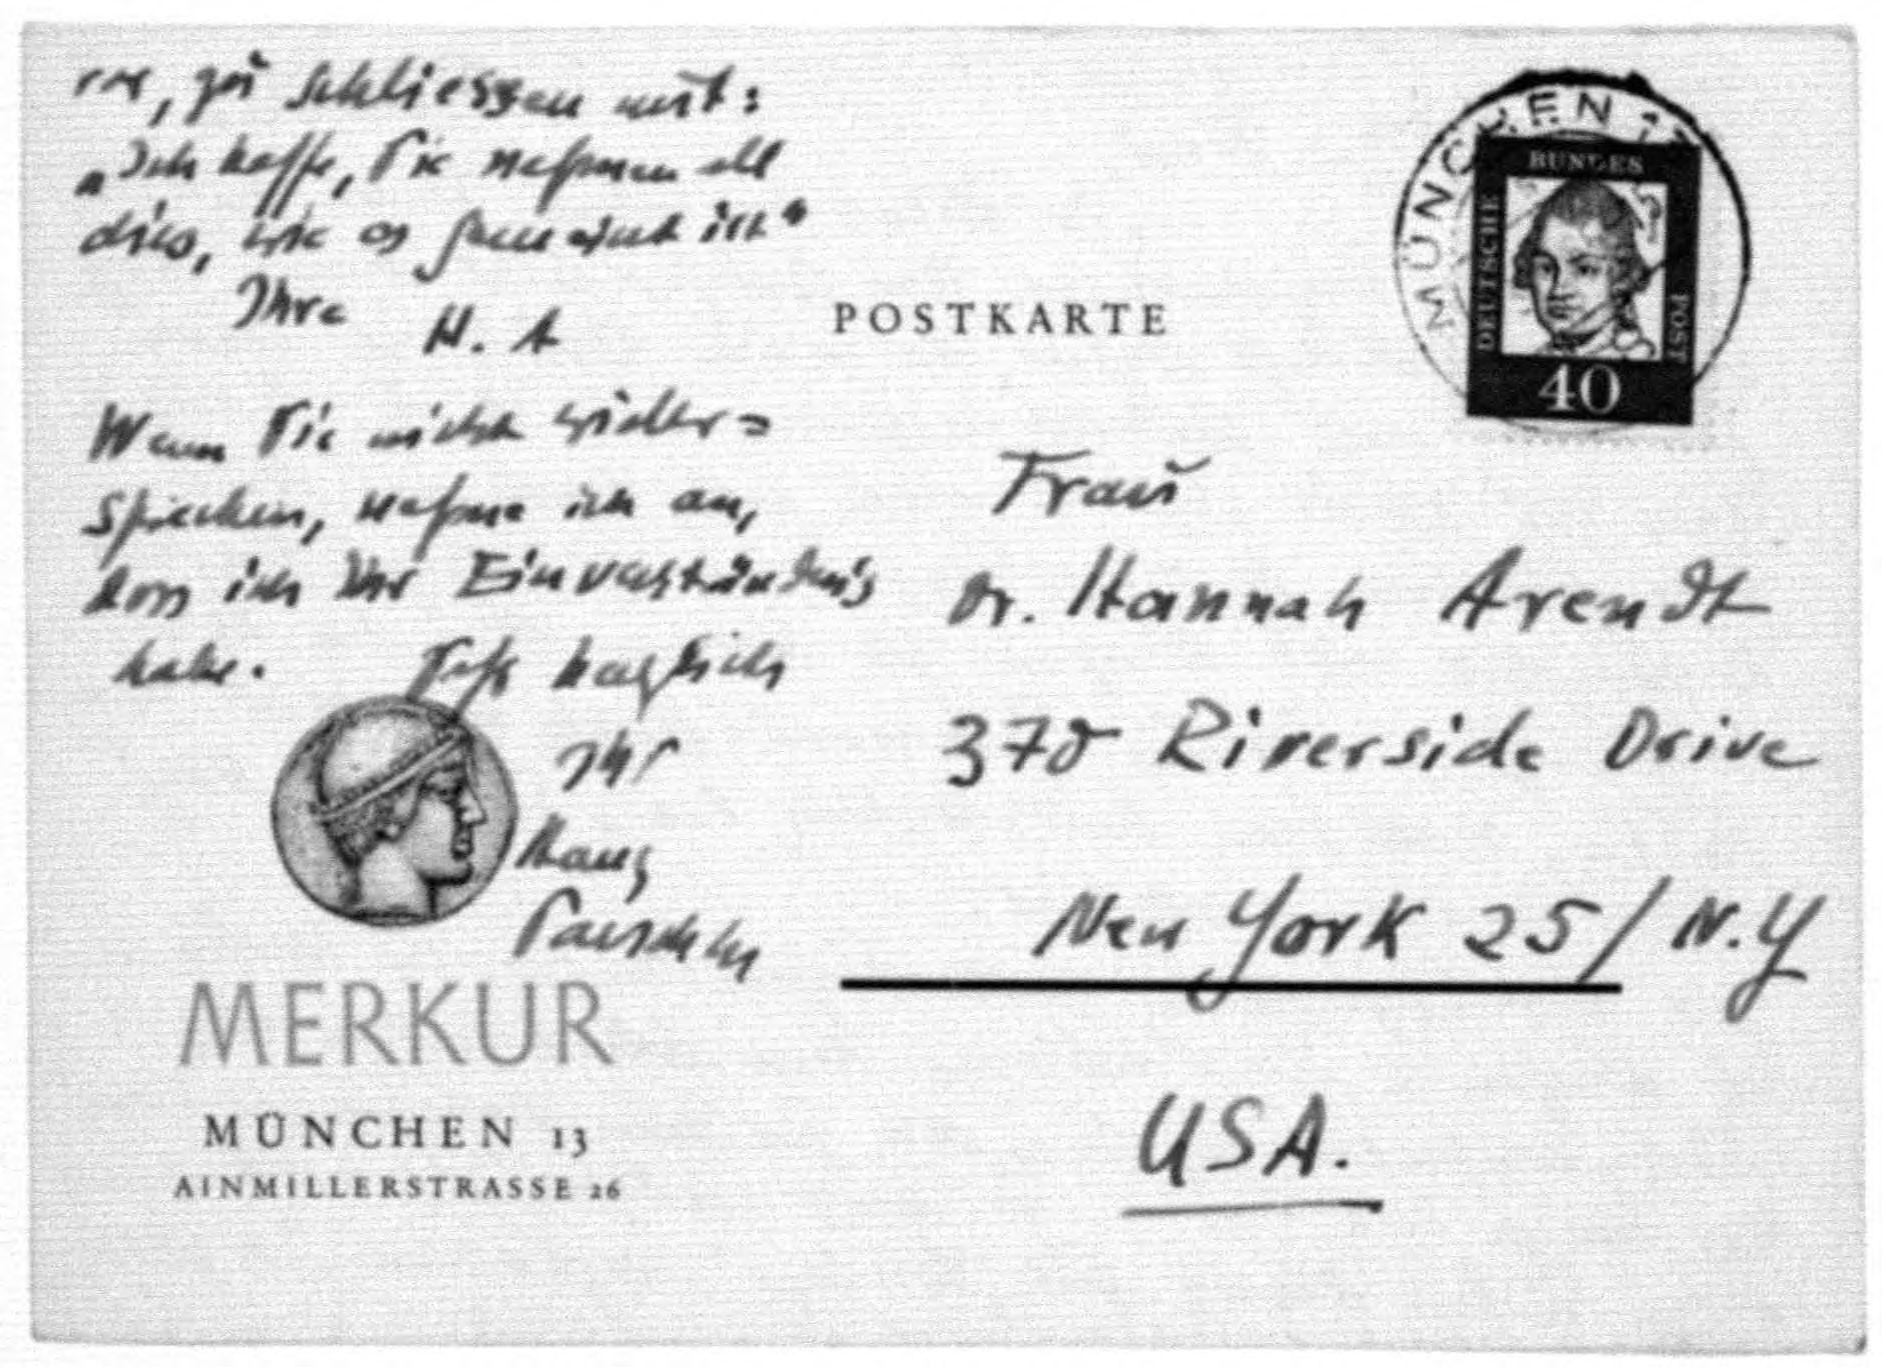 vor, zu schliessen mit:
„Ich hoffe, Sie nehmen all
dies, wie es gemeint ist"
Ihre H. A
Wenn Sie nicht wider=
sprechen, nehme ich an,
dass ich Ihr Einverständnis
habe. Sehr herzlich
Ihr
Hans
Paeschke
MERKUR
MÜNCHEN 13
AINMILLERSTRASSE 26
POSTKARTE
MÜNCHEN
DEUTSCHE BUNDES POST
40
Frau
Dr. Hannah Arendt
370 Riverside Drive
New York 25/N.Y
USA.